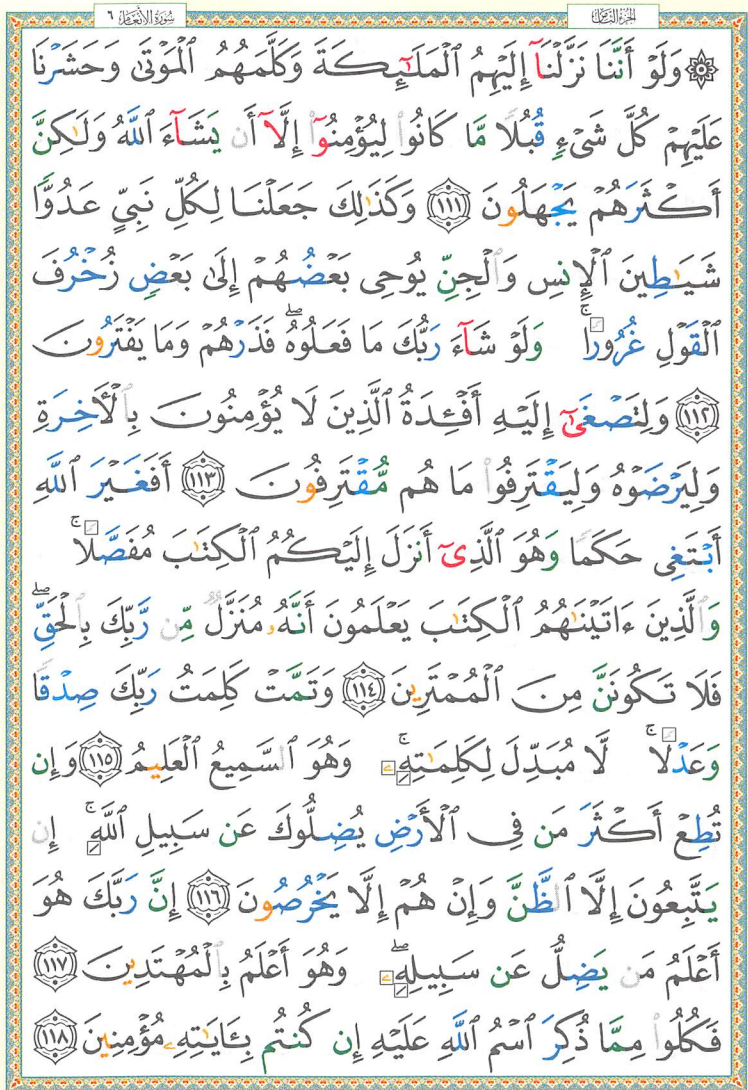 سورة الأنعام ٦
الجزء الثامن
۞ وَلَوْ أَنَّنَا نَزَّلْنَآ إِلَيْهِمُ ٱلْمَلَٰٓئِكَةَ وَكَلَّمَهُمُ ٱلْمَوْتَىٰ وَحَشَرْنَا
عَلَيْهِمْ كُلَّ شَىْءٍ قُبُلًا مَّا كَانُوا۟ لِيُؤْمِنُوٓا۟ إِلَّآ أَن يَشَآءَ ٱللَّهُ وَلَٰكِنَّ
أَكْثَرَهُمْ يَجْهَلُونَ ١١١ وَكَذَٰلِكَ جَعَلْنَا لِكُلِّ نَبِىٍّ عَدُوًّا
شَيَٰطِينَ ٱلْإِنسِ وَٱلْجِنِّ يُوحِى بَعْضُهُمْ إِلَىٰ بَعْضٍ زُخْرُفَ
ٱلْقَوْلِ غُرُورًا ۚ وَلَوْ شَآءَ رَبُّكَ مَا فَعَلُوهُ ۖ فَذَرْهُمْ وَمَا يَفْتَرُونَ
١١٢ وَلِتَصْغَىٰٓ إِلَيْهِ أَفْـِٔدَةُ ٱلَّذِينَ لَا يُؤْمِنُونَ بِٱلْءَاخِرَةِ
وَلِيَرْضَوْهُ وَلِيَقْتَرِفُوا۟ مَا هُم مُّقْتَرِفُونَ ١١٣ أَفَغَيْرَ ٱللَّهِ
أَبْتَغِى حَكَمًا وَهُوَ ٱلَّذِىٓ أَنزَلَ إِلَيْكُمُ ٱلْكِتَٰبَ مُفَصَّلًا ۚ
وَٱلَّذِينَ ءَاتَيْنَٰهُمُ ٱلْكِتَٰبَ يَعْلَمُونَ أَنَّهُۥ مُنَزَّلٌ مِّن رَّبِّكَ بِٱلْحَقِّ ۖ
فَلَا تَكُونَنَّ مِنَ ٱلْمُمْتَرِينَ ١١٤ وَتَمَّتْ كَلِمَتُ رَبِّكَ صِدْقًا
وَعَدْلًا ۚ لَّا مُبَدِّلَ لِكَلِمَٰتِهِۦ ۚ وَهُوَ ٱلسَّمِيعُ ٱلْعَلِيمُ ١١٥ وَإِن
تُطِعْ أَكْثَرَ مَن فِى ٱلْأَرْضِ يُضِلُّوكَ عَن سَبِيلِ ٱللَّهِ ۚ إِن
يَتَّبِعُونَ إِلَّا ٱلظَّنَّ وَإِنْ هُمْ إِلَّا يَخْرُصُونَ ١١٦ إِنَّ رَبَّكَ هُوَ
أَعْلَمُ مَن يَضِلُّ عَن سَبِيلِهِۦ ۖ وَهُوَ أَعْلَمُ بِٱلْمُهْتَدِينَ ١١٧
فَكُلُوا۟ مِمَّا ذُكِرَ ٱسْمُ ٱللَّهِ عَلَيْهِ إِن كُنتُم بِـَٔايَٰتِهِۦ مُؤْمِنِينَ ١١٨